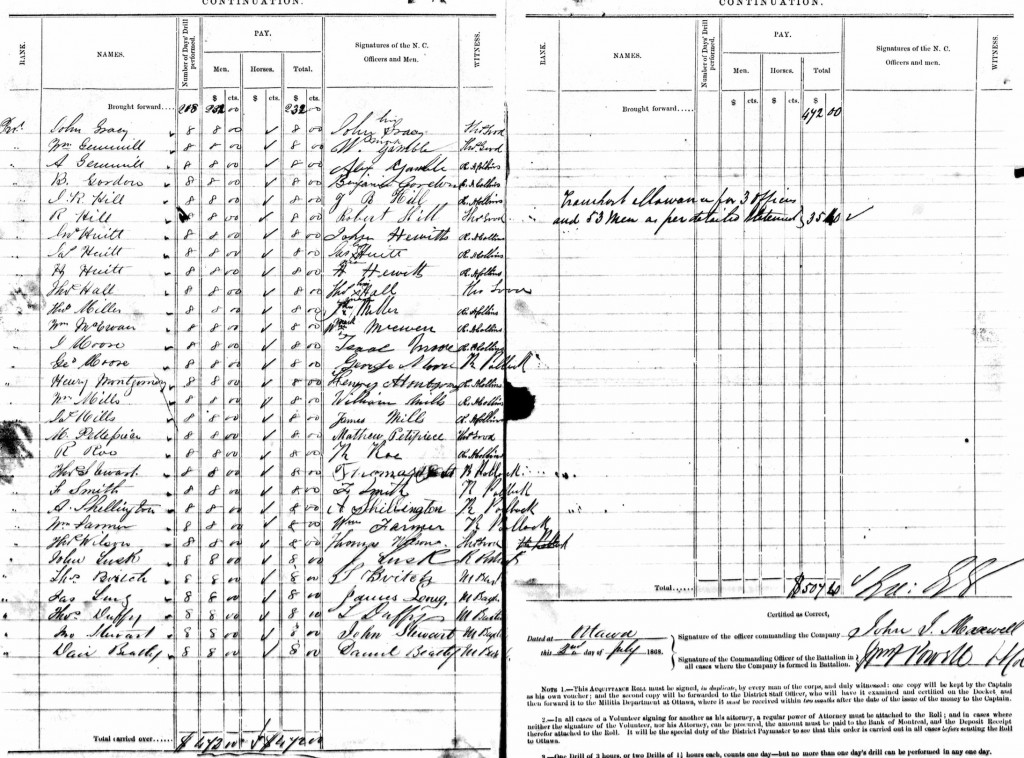 CONTINUATION.
RANK. NAMES. Number of Days' Drill performed. PAY. Signatures of the N. C. Officers and Men. WITNESS.
Men. Horses. Total.
$ cts. $ cts. $ cts.
Brought forward.... 208 232 00 232 00
John Gracy 8 8 00 ✓ 8 00 John Gracy Thos Good
Wm Gemmill 8 8 00 ✓ 8 00 W. Gamble Thos Good
A Gemmill 8 8 00 ✓ 8 00 Alex Gamble R. Collins
B. Gordon 8 8 00 ✓ 8 00 Gordon R. Collins
Hill 8 8 00 ✓ 8 00 Hill R. Collins
R Hill 8 8 00 ✓ 8 00 Robert Hill Thos Good
Huitt 8 8 00 ✓ 8 00 John Hewitt R. Collins
Jas Huitt 8 8 00 ✓ 8 00 Jas Huitt R. Collins
H Huitt 8 8 00 ✓ 8 00 H Hewitt R. Collins
Thos Hall 8 8 00 ✓ 8 00 Thos Hall Thos Good
Miller 8 8 00 ✓ 8 00 Miller R. Collins
Wm McEwan 8 8 00 ✓ 8 00 Wm McEwen R. Collins
I Moore 8 8 00 ✓ 8 00 Isaac Moore R. Collins
Geo Moore 8 8 00 ✓ 8 00 George Moore R Pollock
Henry Montgomery 8 8 00 ✓ 8 00 Henry Montgomery R. Collins
Wm Mills 8 8 00 ✓ 8 00 William Mills R. Collins
Jas Mills 8 8 00 ✓ 8 00 James Mills R. Collins
M. 8 8 00 ✓ 8 00 Mathew Petepiece Thos Good
R Roe 8 8 00 ✓ 8 00 Roe R. Collins
Thos Stewart 8 8 00 ✓ 8 00 Thomas R Pollock
F Smith 8 8 00 ✓ 8 00 F Smith R Pollock
A Shellington 8 8 00 ✓ 8 00 A Shillington R Pollock
Wm Farmer 8 8 00 ✓ 8 00 Wm Farmer R Pollock
Thos Wilson 8 8 00 ✓ 8 00 Thomas Wilson Thos Good
John Lusk 8 8 00 ✓ 8 00 Lusk R Pollock
Thos 8 8 00 ✓ 8 00
Jas Long 8 8 00 ✓ 8 00 James Long
Thos Duffy 8 8 00 ✓ 8 00 Duffy
Jno Stewart 8 8 00 ✓ 8 00 John Stewart
Beatty 8 8 00 ✓ 8 00 Daniel Beatty
Total carried over...... $ 472 00 $ 472 00
CONTINUATION.
RANK. NAMES. Number of Days' Drill performed. PAY. Signatures of the N. C. Officers and men. WITNESS.
Men. Horses. Total
$ cts. $ cts. $ cts.
Brought forward.... 472 00
Transport allowance for 3 officers
and 53 men as per detailed statement } 35 60 ✓
Total...... $507 60
Certified as Correct,
Dated at Ottawa
this 2nd day of July 1868.
Signature of the officer commanding the Company John J. Maxwell
Signature of the Commanding Officer of the Battalion in all cases where the Company is formed in Battalion.
NOTE 1.—This ACQUITTANCE ROLL must be signed, in duplicate, by every man of the corps, and duly witnessed: one copy will be kept by the Captain
as his own voucher; and the second copy will be forwarded to the District Staff Officer, who will have it examined and certified on the Docket, and
then forward it to the Militia Department at Ottawa, where it must be received within two months after the date of the issue of the money to the Captain.
2.—In all cases of a Volunteer signing for another as his attorney, a regular power of Attorney must be attached to the Roll; and in cases where
neither the signature of the Volunteer, nor his Attorney, can be procured, the amount must be paid to the Bank of Montreal, and the Deposit Receipt
therefor attached to the Roll. It will be the special duty of the District Paymaster to see that this order is carried out in all cases before sending the Roll
to Ottawa.
3.—One Drill of 3 hours, or two Drills of 1½ hours each, counts one day—but no more than one day's drill can be performed in any one day.